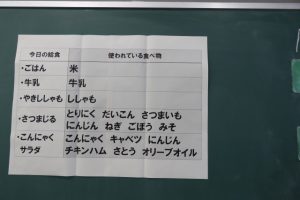 今日の給食 使われている食べ物
・ごはん 米
・牛乳 牛乳
・やきししゃも ししゃも
・さつまじる とりにく だいこん さつまいも
にんじん ねぎ ごぼう みそ
・こんにゃく こんにゃく キャベツ にんじん
サラダ チキンハム さとう オリーブオイル